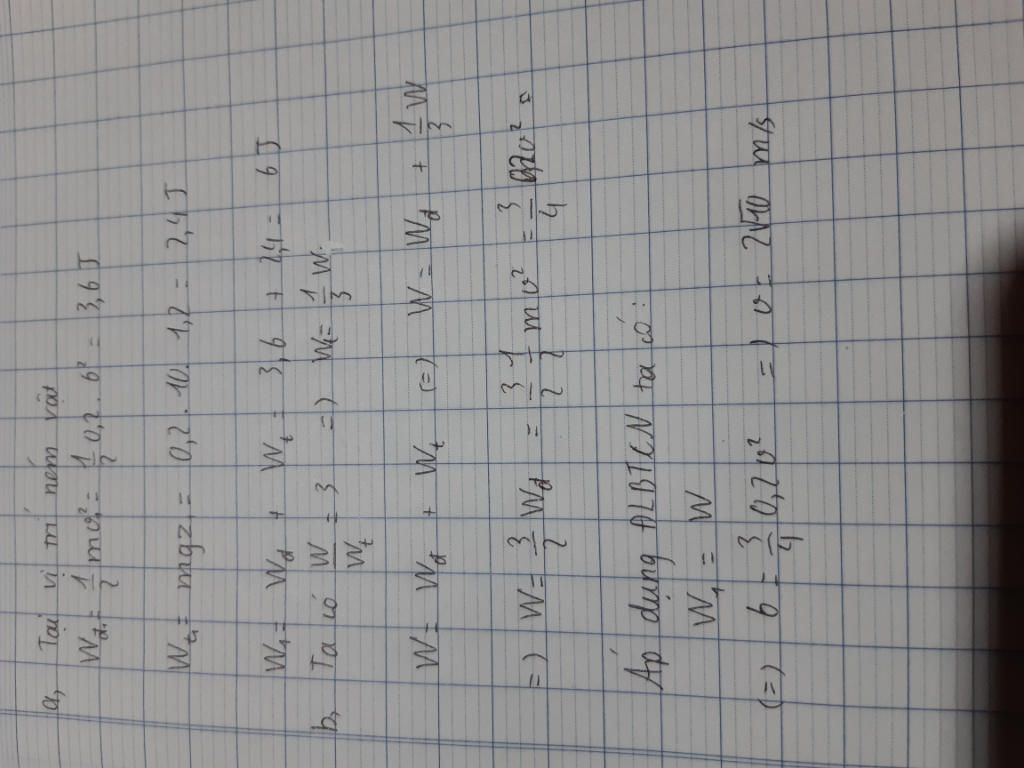 a, Tại vị trí ném vật
Wđ₁ = 1/2 mv₀² = 1/2 0,2 . 6² = 3,6 J
Wt₁ = mgz = 0,2 . 10 . 1,2 = 2,4 J
W₁ = Wđ + Wt = 3,6 + 2,4 = 6 J
b, Ta có W/Wt = 3 =) Wt = 1/3 W
W = Wđ + Wt (=) W = Wđ + 1/3 W
=) W = 3/2 Wđ = 3/2 1/2 mv² = 3/4 0,2v² =
Áp dụng ĐLBTCN ta có:
W₁ = W
(=) 6 = 3/4 0,2v² =) v = 2√10 m/s